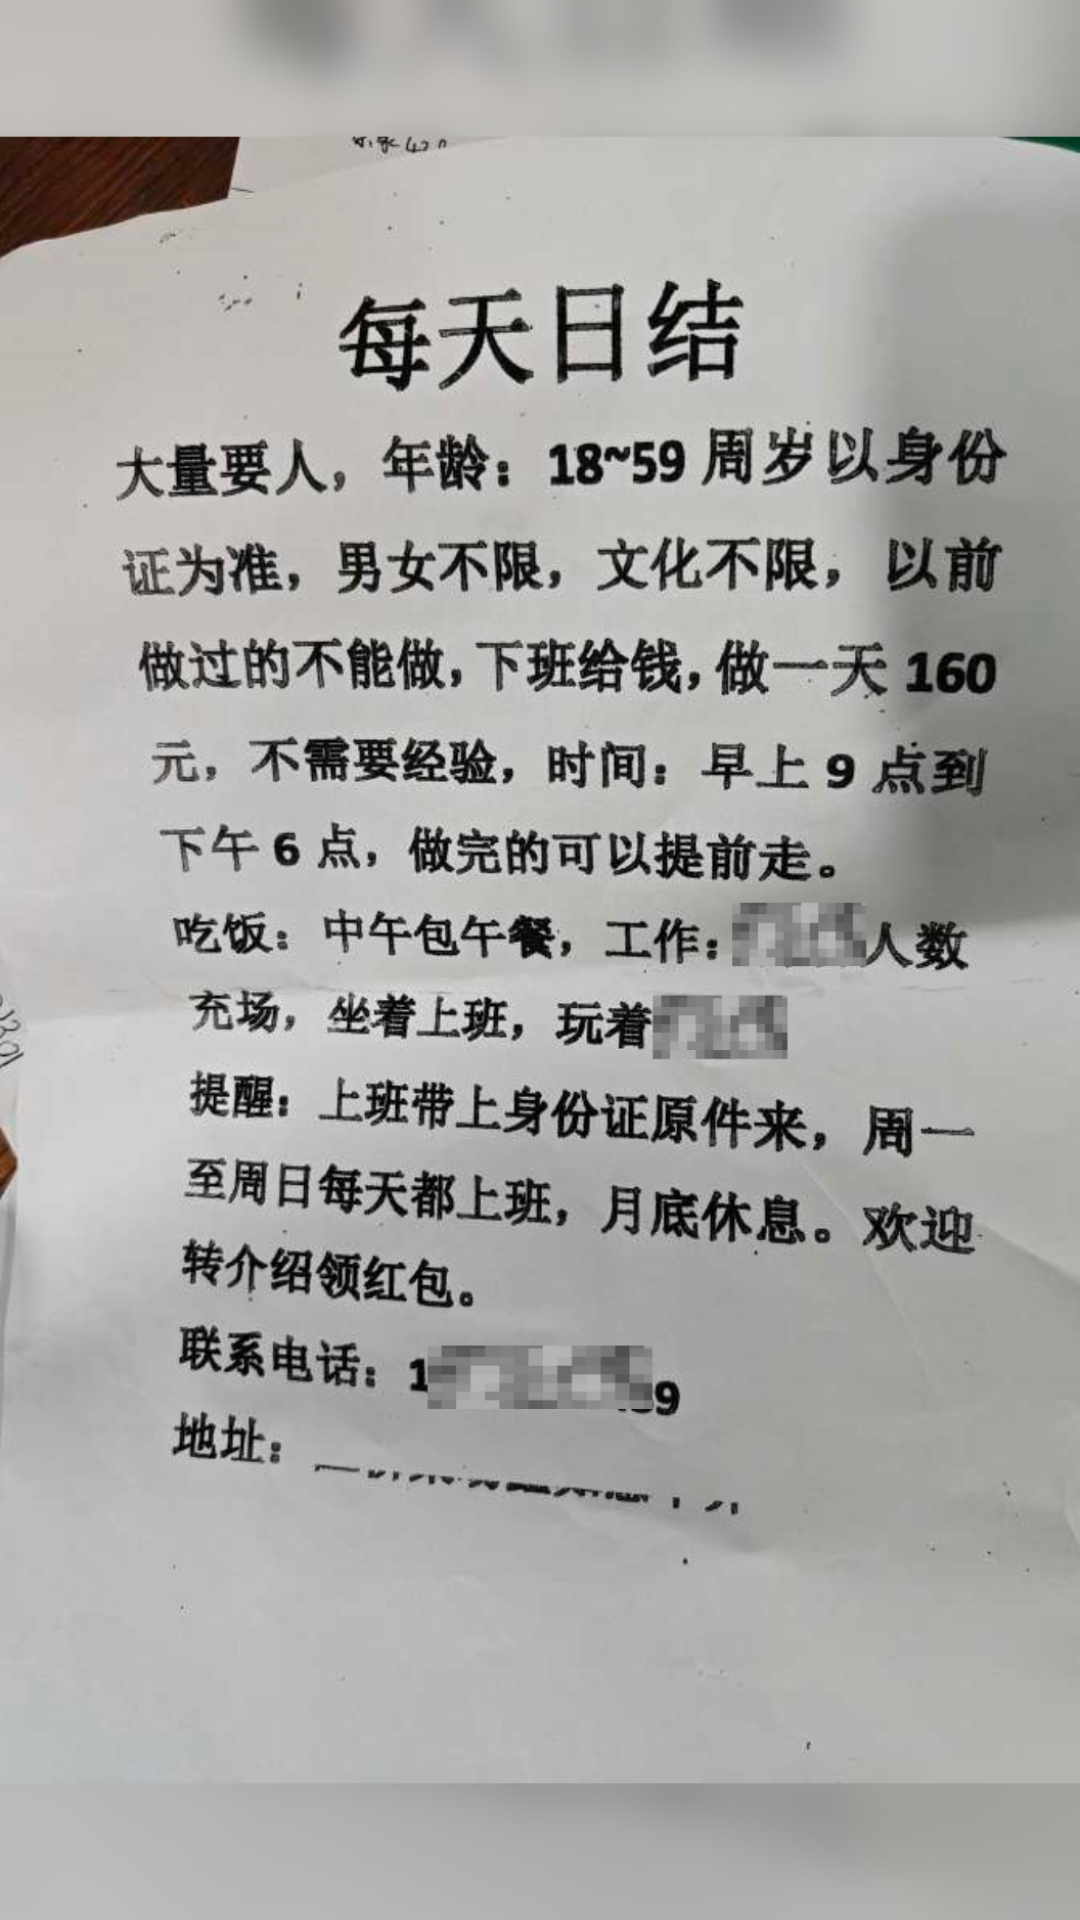 每天日结
大量要人，年龄：18~59周岁以身份
证为准，男女不限，文化不限，以前
做过的不能做，下班给钱，做一天160
元，不需要经验，时间：早上9点到
下午6点，做完的可以提前走。
吃饭：中午包午餐，工作：人数
充场，坐着上班，玩着
提醒：上班带上身份证原件来，周一
至周日每天都上班，月底休息。欢迎
转介绍领红包。
联系电话：1 9
地址：